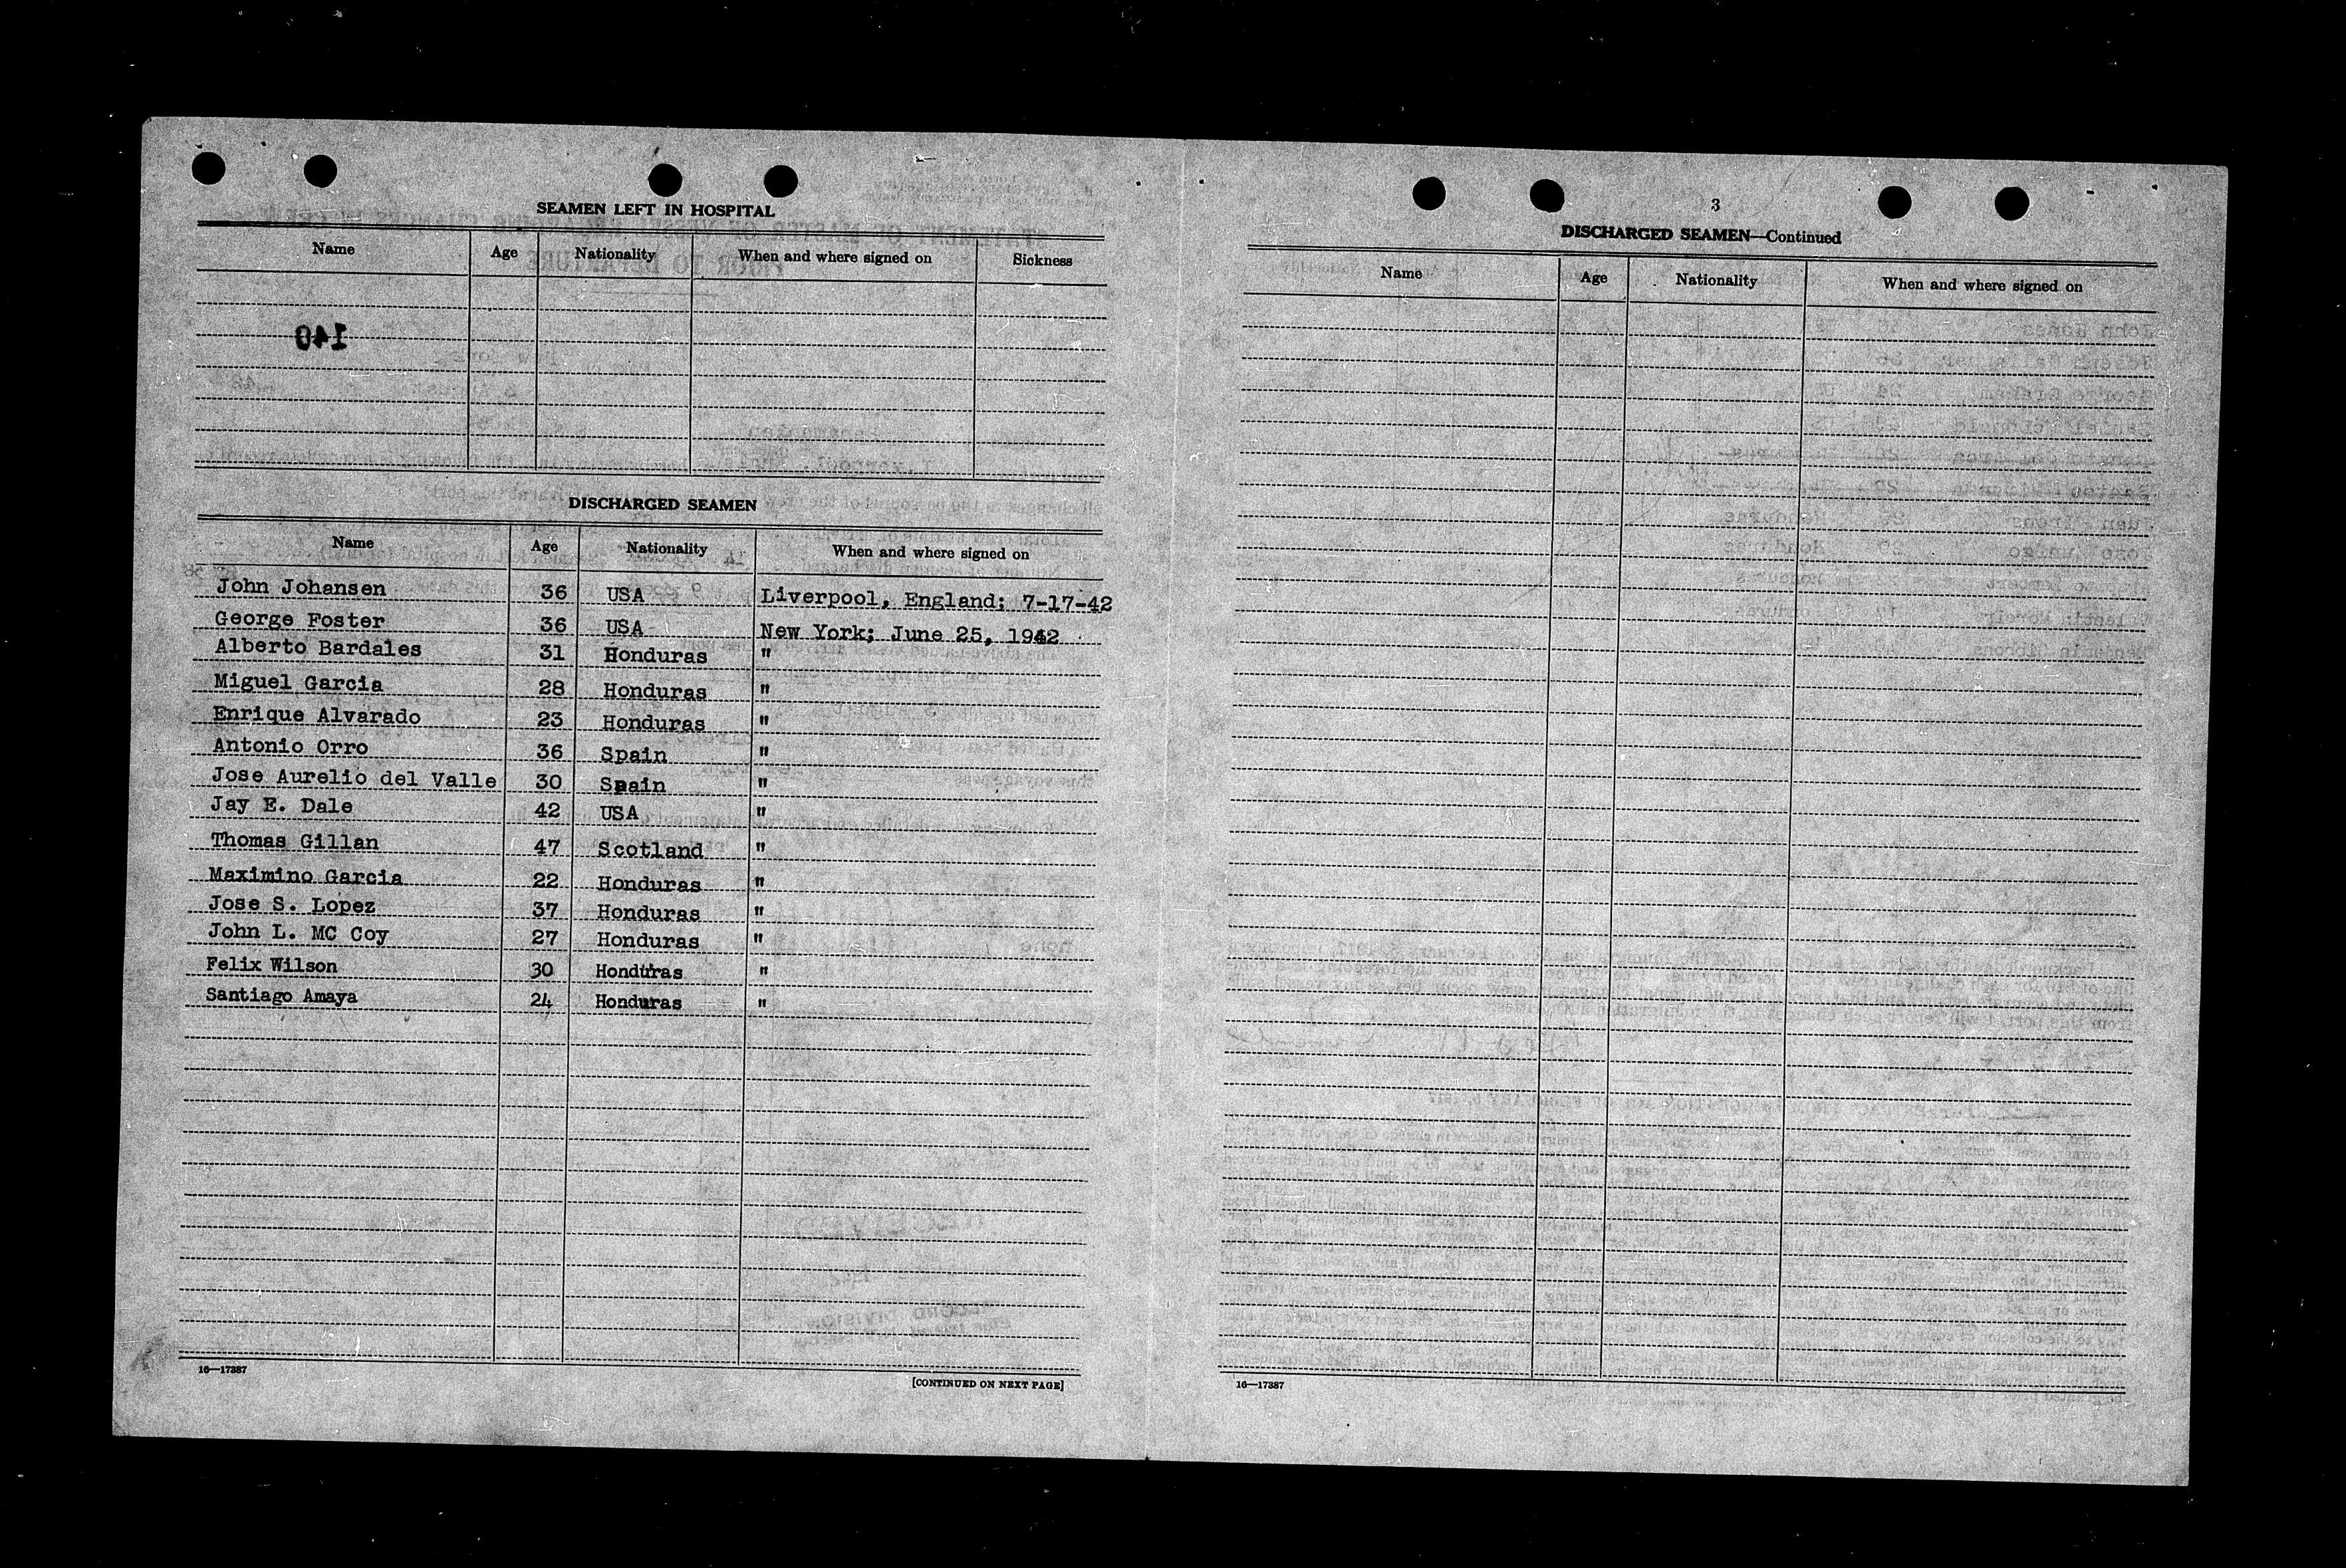 SEAMEN LEFT IN HOSPITAL
Name Age Nationality When and where signed on Sickness
140
DISCHARGED SEAMEN
Name Age Nationality When and where signed on
John Johansen 36 USA Liverpool, England; 7-17-42
George Foster 36 USA New York; June 25, 1942
Alberto Bardales 31 Honduras "
Miguel Garcia 28 Honduras "
Enrique Alvarado 23 Honduras "
Antonio Orro 36 Spain "
Jose Aurelio del Valle 30 Spain "
Jay E. Dale 42 USA "
Thomas Gillan 47 Scotland "
Maximino Garcia 22 Honduras "
Jose S. Lopez 37 Honduras "
John L. MC Coy 27 Honduras "
Felix Wilson 30 Honduras "
Santiago Amaya 24 Honduras "
16—17387
[CONTINUED ON NEXT PAGE]
3
DISCHARGED SEAMEN—Continued
Name Age Nationality When and where signed on
16—17387